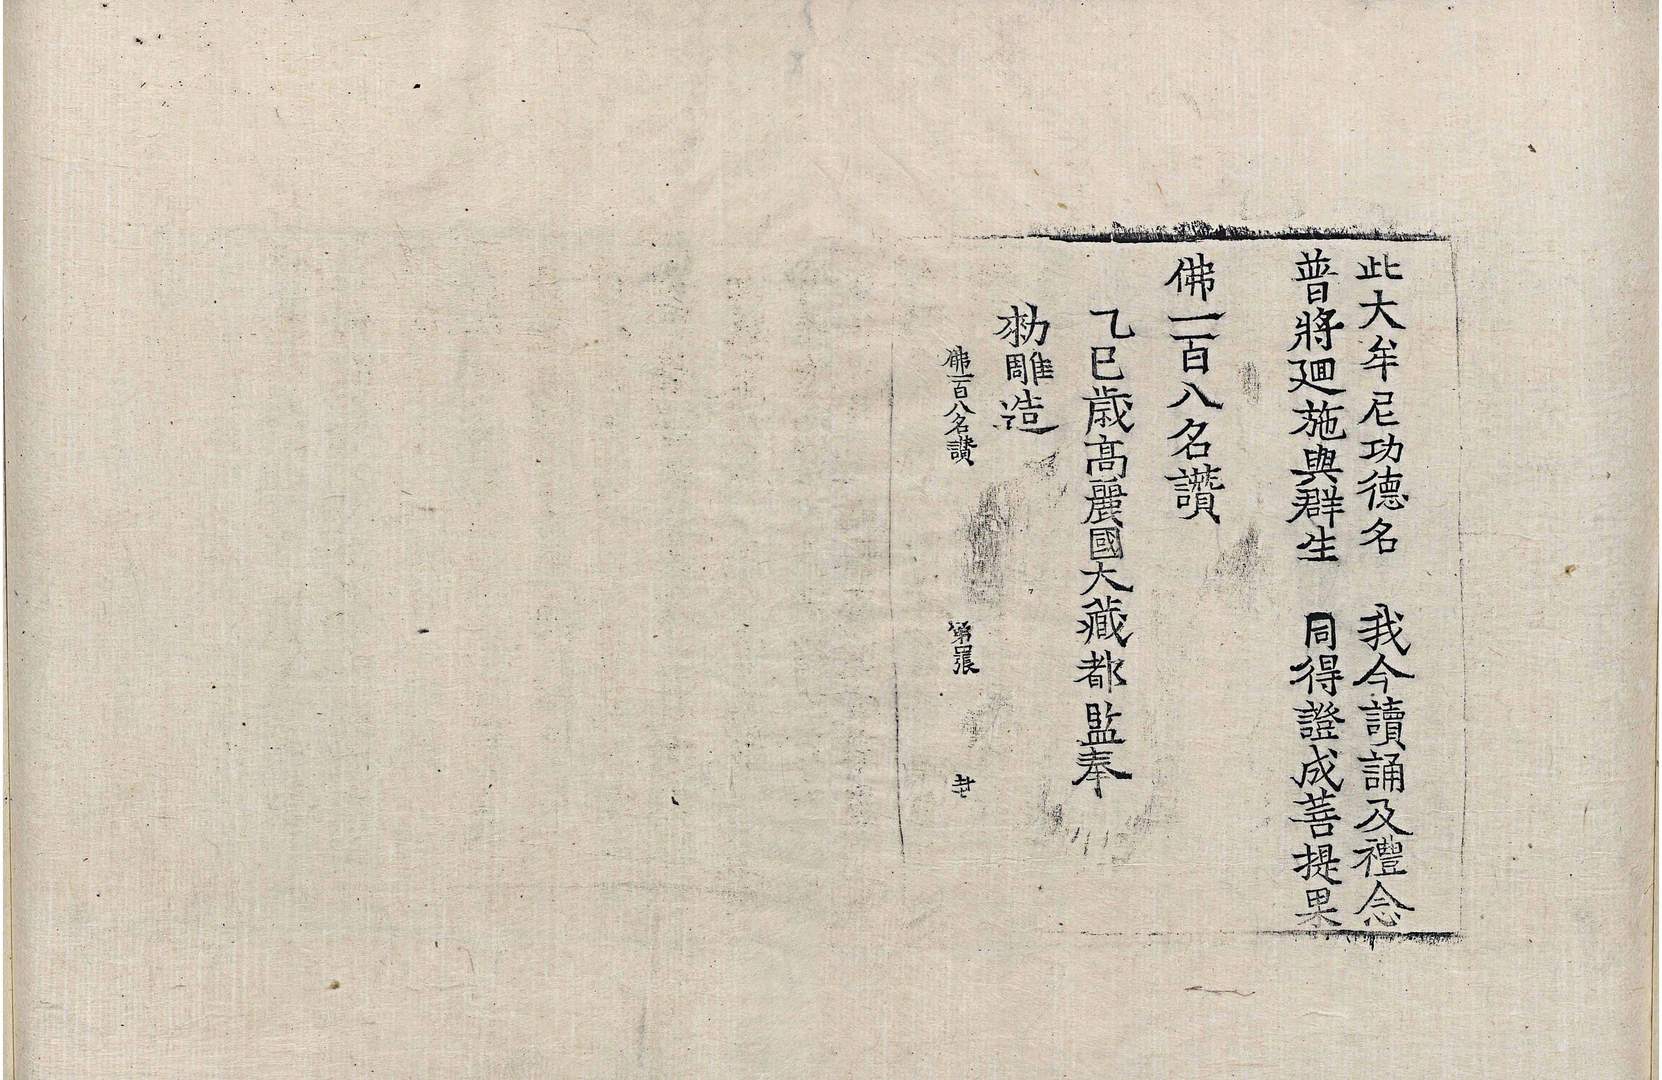 此大牟尼功德名　我今讀誦及禮念
普將廻施與群生　同得證成菩提果
佛一百八名讚
乙巳歲高麗國大藏都監奉
勑雕造
佛一百八名讚　第四張